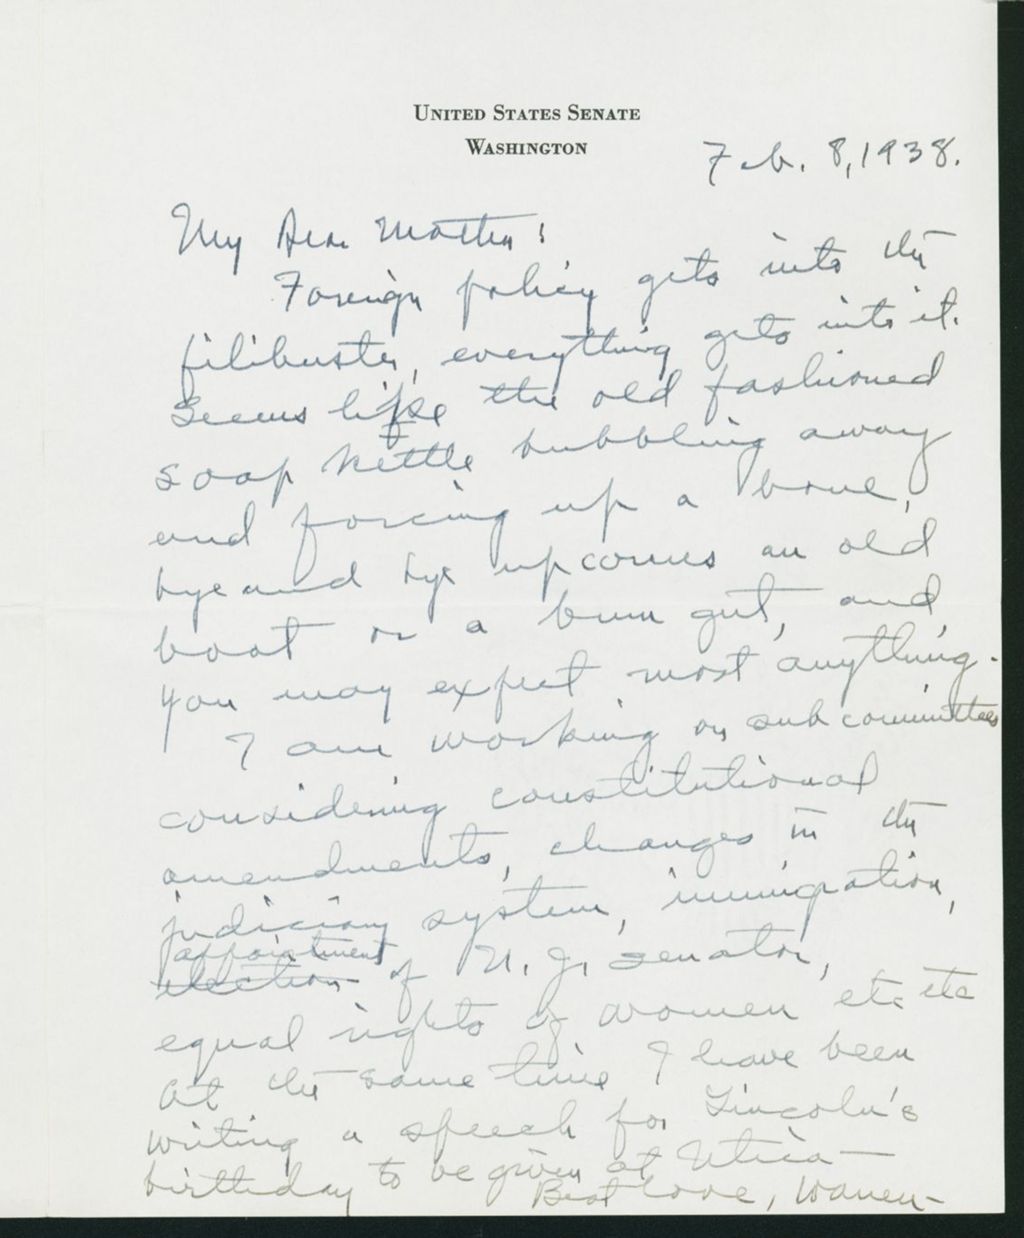 UNITED STATES SENATE
WASHINGTON
Feb. 8, 1938.
My Dear Mother:
Foreign policy gets into the
filibuster, everything gets into it.
Seems like the old fashioned
soap kettle bubbling away
and forcing up a bone,
bye and bye up comes an old
boot or a bum gut, and
you may expect most anything.
I am working on sub committees
considering constitutional
amendments, changes in the
judiciary system, immigration,
appointment
election of N. J. senator,
equal rights of women etc etc
At the same time I have been
writing a speech for Lincoln's
birthday to be given at Utica—
Best love, Warren—